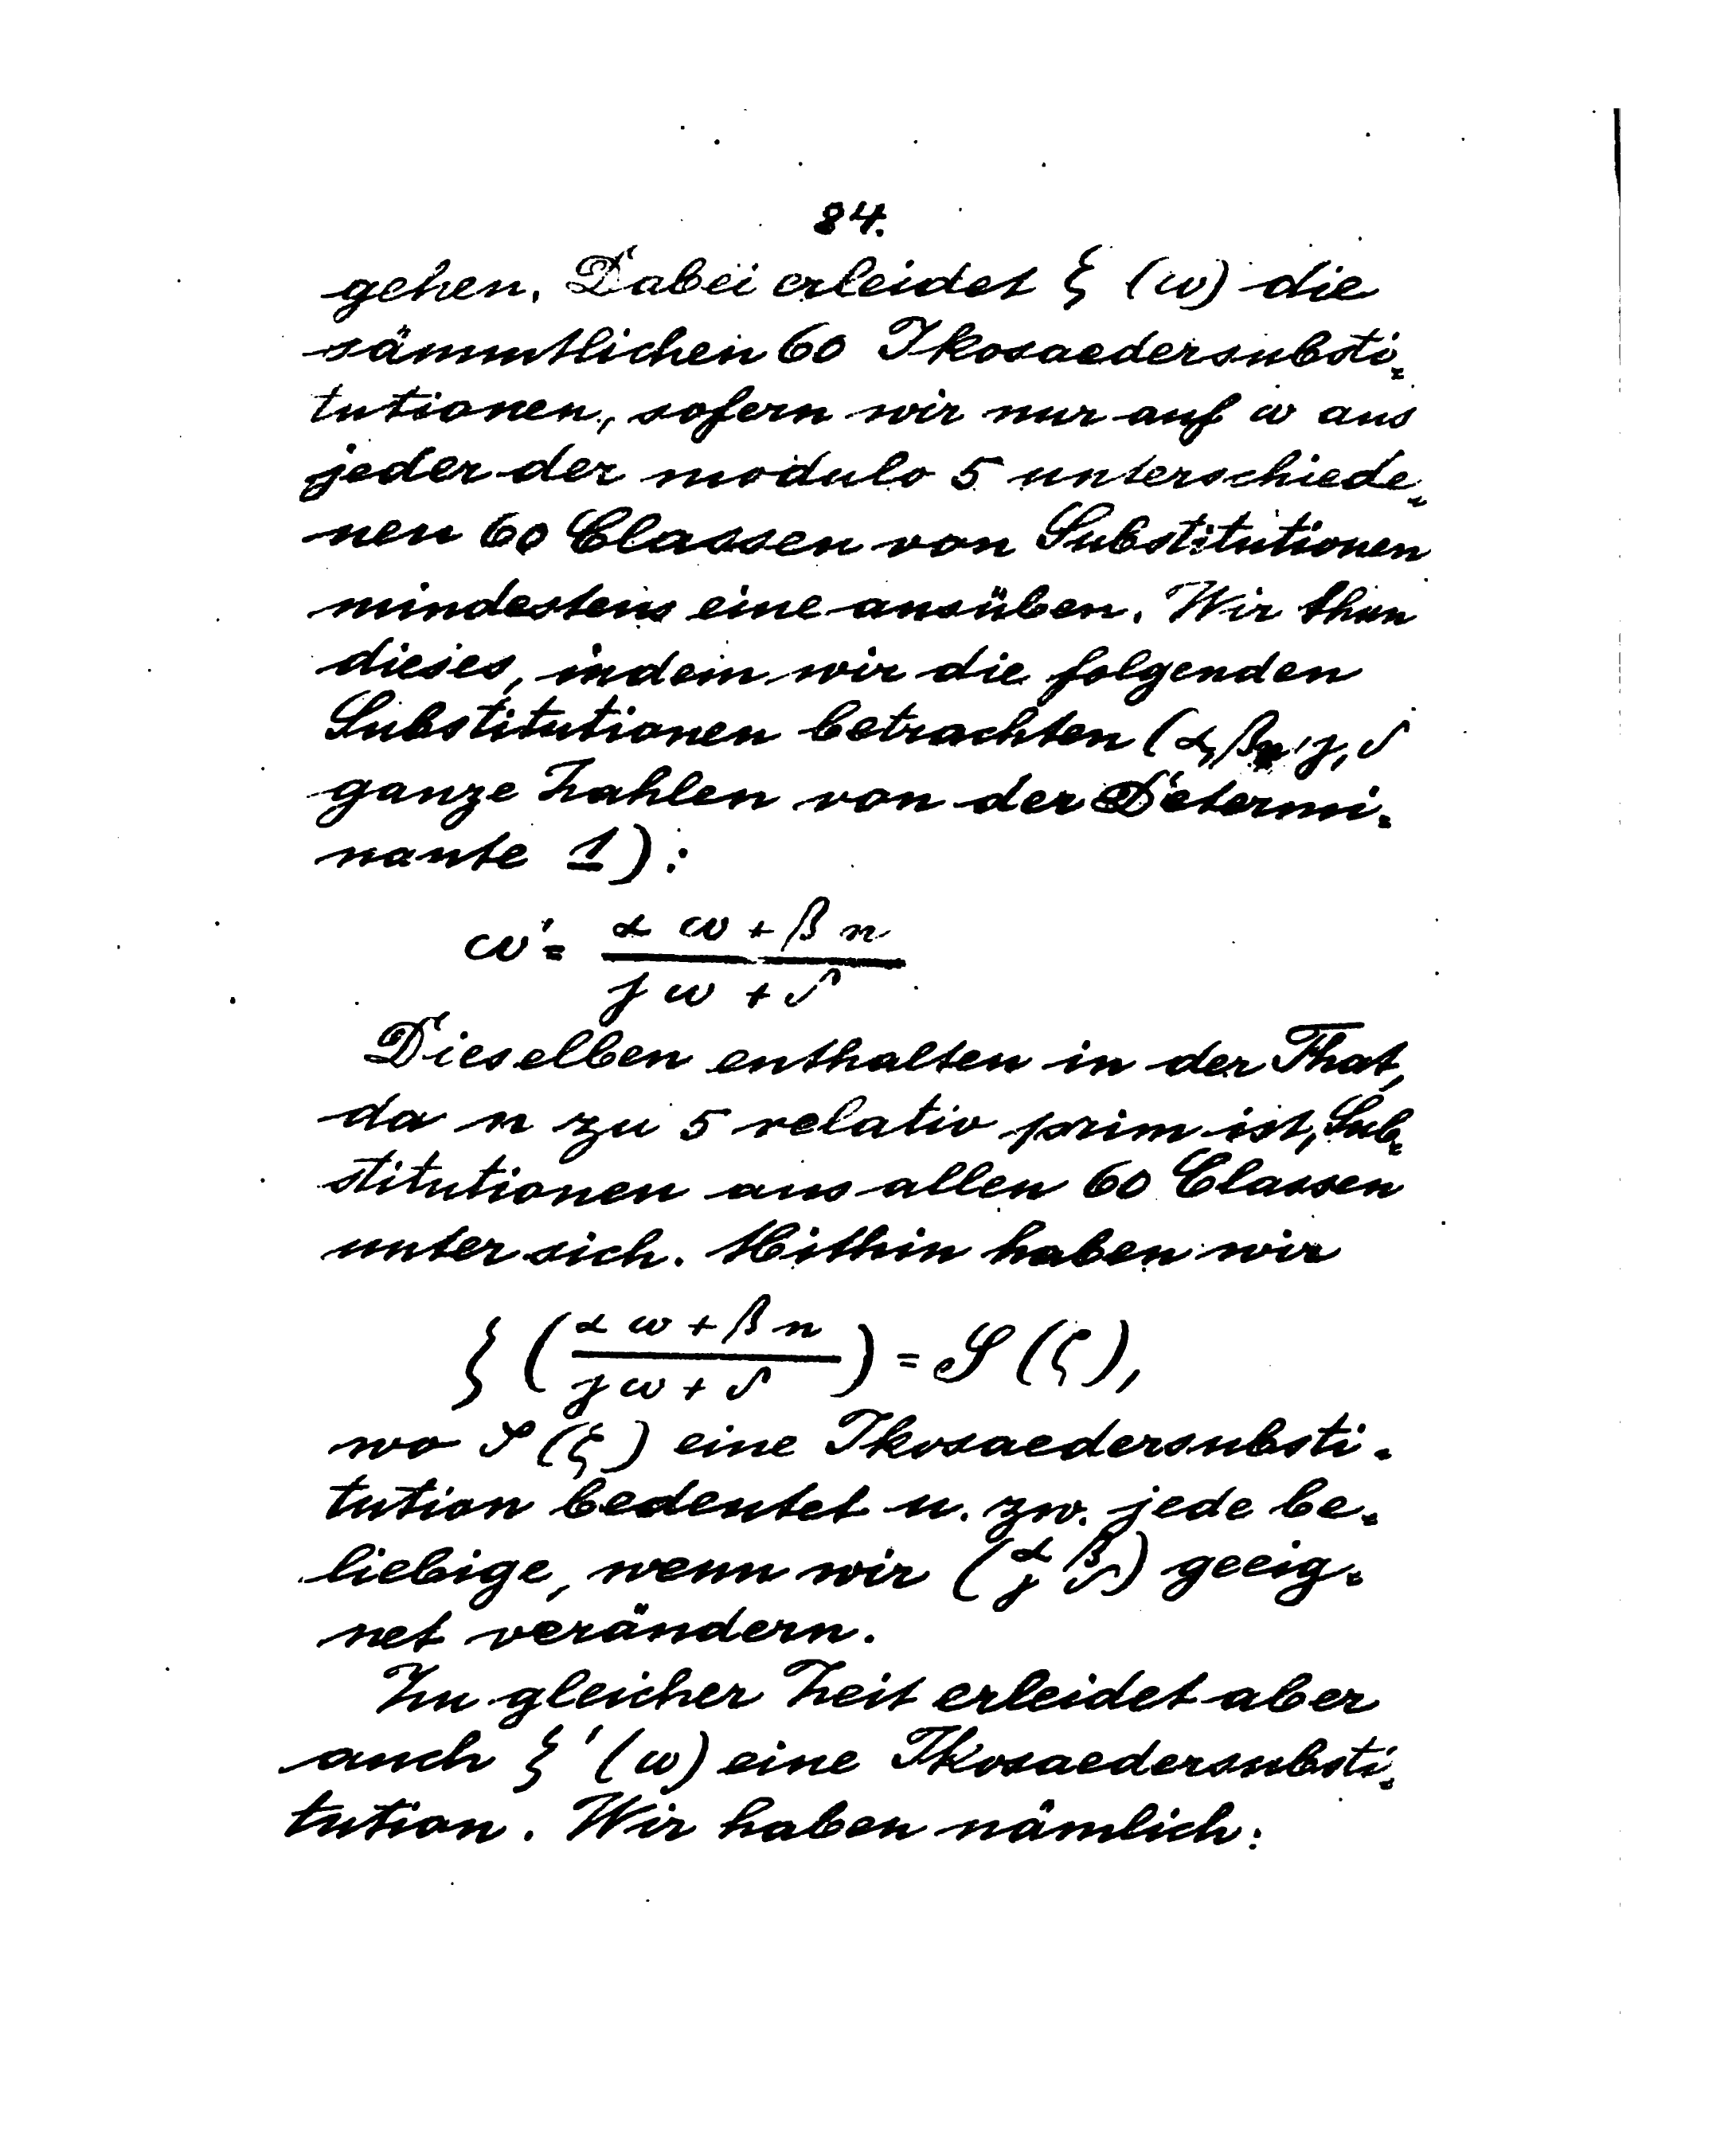 84.
gehen. Dabei erleidet ζ (ω) die
sämmtlichen 60 Ikosaedersubsti-
tutionen, sofern wir nur auf ω aus
jeder der modulo 5 unterschiede-
nen 60 Classen von Substitutionen
mindestens eine ausüben. Wir thun
dieses, indem wir die folgenden
Substitutionen betrachten (α, βn, γ, δ
ganze Zahlen von der Determi-
nante 1):
ω' = (α ω + β n) / (γ ω + δ)
Dieselben enthalten in der That,
da n zu 5 relativ prim ist, Sub-
stitutionen aus allen 60 Classen
unter sich. Mithin haben wir
ζ ((α ω + β n) / (γ ω + δ)) = S (ζ),
wo S (ζ) eine Ikosaedersubsti-
tution bedeutet u. zw. jede be-
liebige, wenn wir (α β / γ δ) geeig-
net verändern.
Zu gleicher Zeit erleidet aber
auch ζ' (ω) eine Ikosaedersubsti-
tution. Wir haben nämlich: